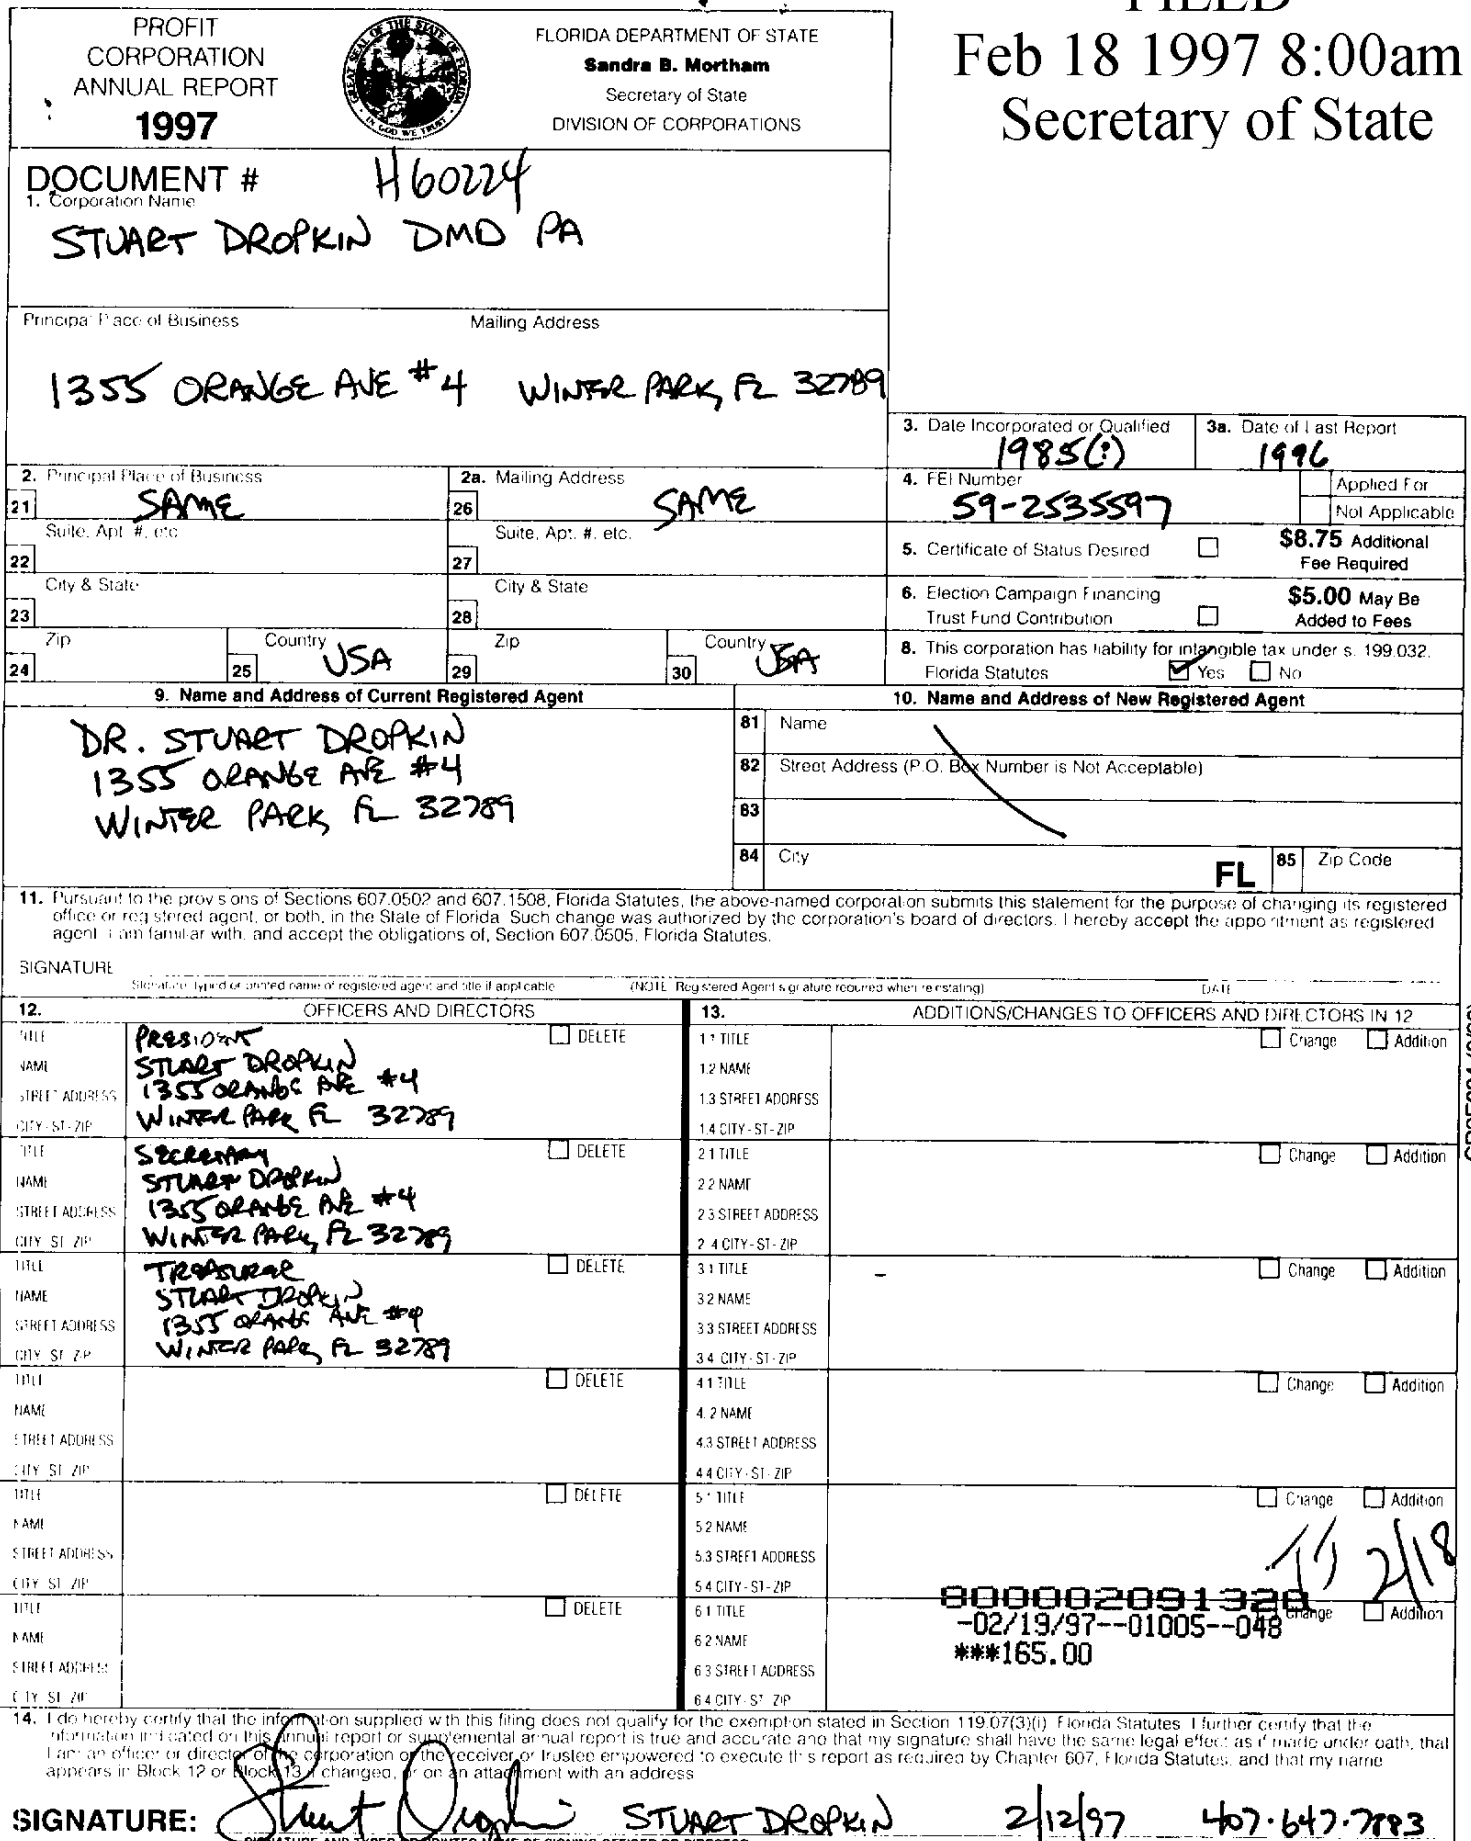 PROFIT
CORPORATION
ANNUAL REPORT
1997
FLORIDA DEPARTMENT OF STATE
Sandra B. Mortham
Secretary of State
DIVISION OF CORPORATIONS
FILED
Feb 18 1997 8:00am
Secretary of State
DOCUMENT # H60224
1. Corporation Name
STUART DROPKIN DMD PA
Principal Place of Business Mailing Address
1355 ORANGE AVE #4 WINTER PARK, FL 32789
3. Date Incorporated or Qualified
1985(?)
3a. Date of Last Report
1996
2. Principal Place of Business
21 SAME
2a. Mailing Address
26 SAME
4. FEI Number
59-2535597
Applied For
Not Applicable
Suite, Apt. #, etc.
22
Suite, Apt. #, etc.
27
5. Certificate of Status Desired
$8.75 Additional
Fee Required
City & State
23
City & State
28
6. Election Campaign Financing
Trust Fund Contribution
$5.00 May Be
Added to Fees
Zip
24
Country
25 USA
Zip
29
Country
30 USA
8. This corporation has liability for intangible tax under s. 199.032,
Florida Statutes Yes No
9. Name and Address of Current Registered Agent
DR. STUART DROPKIN
1355 ORANGE AVE #4
WINTER PARK, FL 32789
10. Name and Address of New Registered Agent
81 Name
82 Street Address (P.O. Box Number is Not Acceptable)
83
84 City
FL 85 Zip Code
11. Pursuant to the provisions of Sections 607.0502 and 607.1508, Florida Statutes, the above-named corporation submits this statement for the purpose of changing its registered
office or registered agent, or both, in the State of Florida. Such change was authorized by the corporation's board of directors. I hereby accept the appointment as registered
agent. I am familiar with, and accept the obligations of, Section 607.0505, Florida Statutes.
SIGNATURE
Signature, typed or printed name of registered agent and title if applicable (NOTE: Registered Agent signature required when reinstating) DATE
12. OFFICERS AND DIRECTORS
TITLE PRESIDENT DELETE
NAME STUART DROPKIN
STREET ADDRESS 1355 ORANGE AVE #4
CITY-ST-ZIP WINTER PARK FL 32789
TITLE SECRETARY DELETE
NAME STUART DROPKIN
STREET ADDRESS 1355 ORANGE AVE #4
CITY-ST-ZIP WINTER PARK, FL 32789
TITLE TREASURER DELETE
NAME STUART DROPKIN
STREET ADDRESS 1355 ORANGE AVE #4
CITY-ST-ZIP WINTER PARK, FL 32789
TITLE DELETE
NAME
STREET ADDRESS
CITY-ST-ZIP
TITLE DELETE
NAME
STREET ADDRESS
CITY-ST-ZIP
TITLE DELETE
NAME
STREET ADDRESS
CITY-ST-ZIP
13. ADDITIONS/CHANGES TO OFFICERS AND DIRECTORS IN 12
1.1 TITLE Change Addition
1.2 NAME
1.3 STREET ADDRESS
1.4 CITY-ST-ZIP
2.1 TITLE Change Addition
2.2 NAME
2.3 STREET ADDRESS
2.4 CITY-ST-ZIP
3.1 TITLE Change Addition
3.2 NAME
3.3 STREET ADDRESS
3.4 CITY-ST-ZIP
4.1 TITLE Change Addition
4.2 NAME
4.3 STREET ADDRESS
4.4 CITY-ST-ZIP
5.1 TITLE Change Addition
5.2 NAME
5.3 STREET ADDRESS
5.4 CITY-ST-ZIP
2/18
6.1 TITLE Change Addition
6.2 NAME
6.3 STREET ADDRESS
6.4 CITY-ST-ZIP
800002091328
-02/19/97--01005--048
***165.00
14. I do hereby certify that the information supplied with this filing does not qualify for the exemption stated in Section 119.07(3)(i) Florida Statutes. I further certify that the
information indicated on this annual report or supplemental annual report is true and accurate and that my signature shall have the same legal effect as if made under oath, that
I am an officer or director of the corporation or the receiver or trustee empowered to execute this report as required by Chapter 607, Florida Statutes, and that my name
appears in Block 12 or Block 13 if changed, or on an attachment with an address
SIGNATURE: Stuart Dropkin STUART DROPKIN 2/12/97 407-647-7883